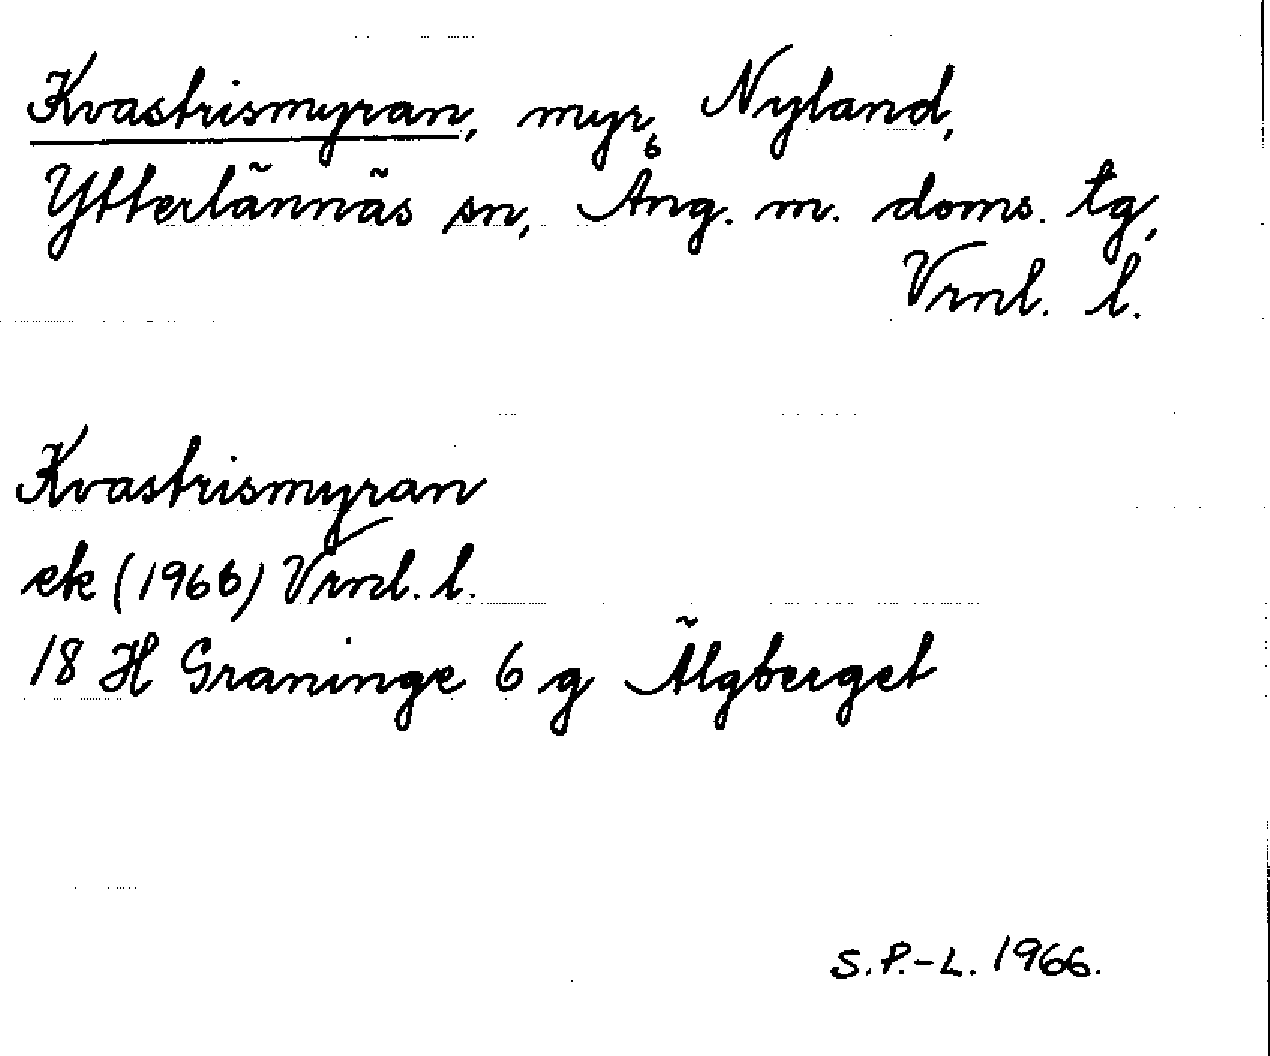 Kvastrismyran, myr, Nyland,
Ytterlännäs sn, Ång. m. doms. tg,
Vrnl. l.
Kvastrismyran
ek (1966) Vrnl. l.
18 H Graninge 6 g Älgberget
S.P.-L. 1966.